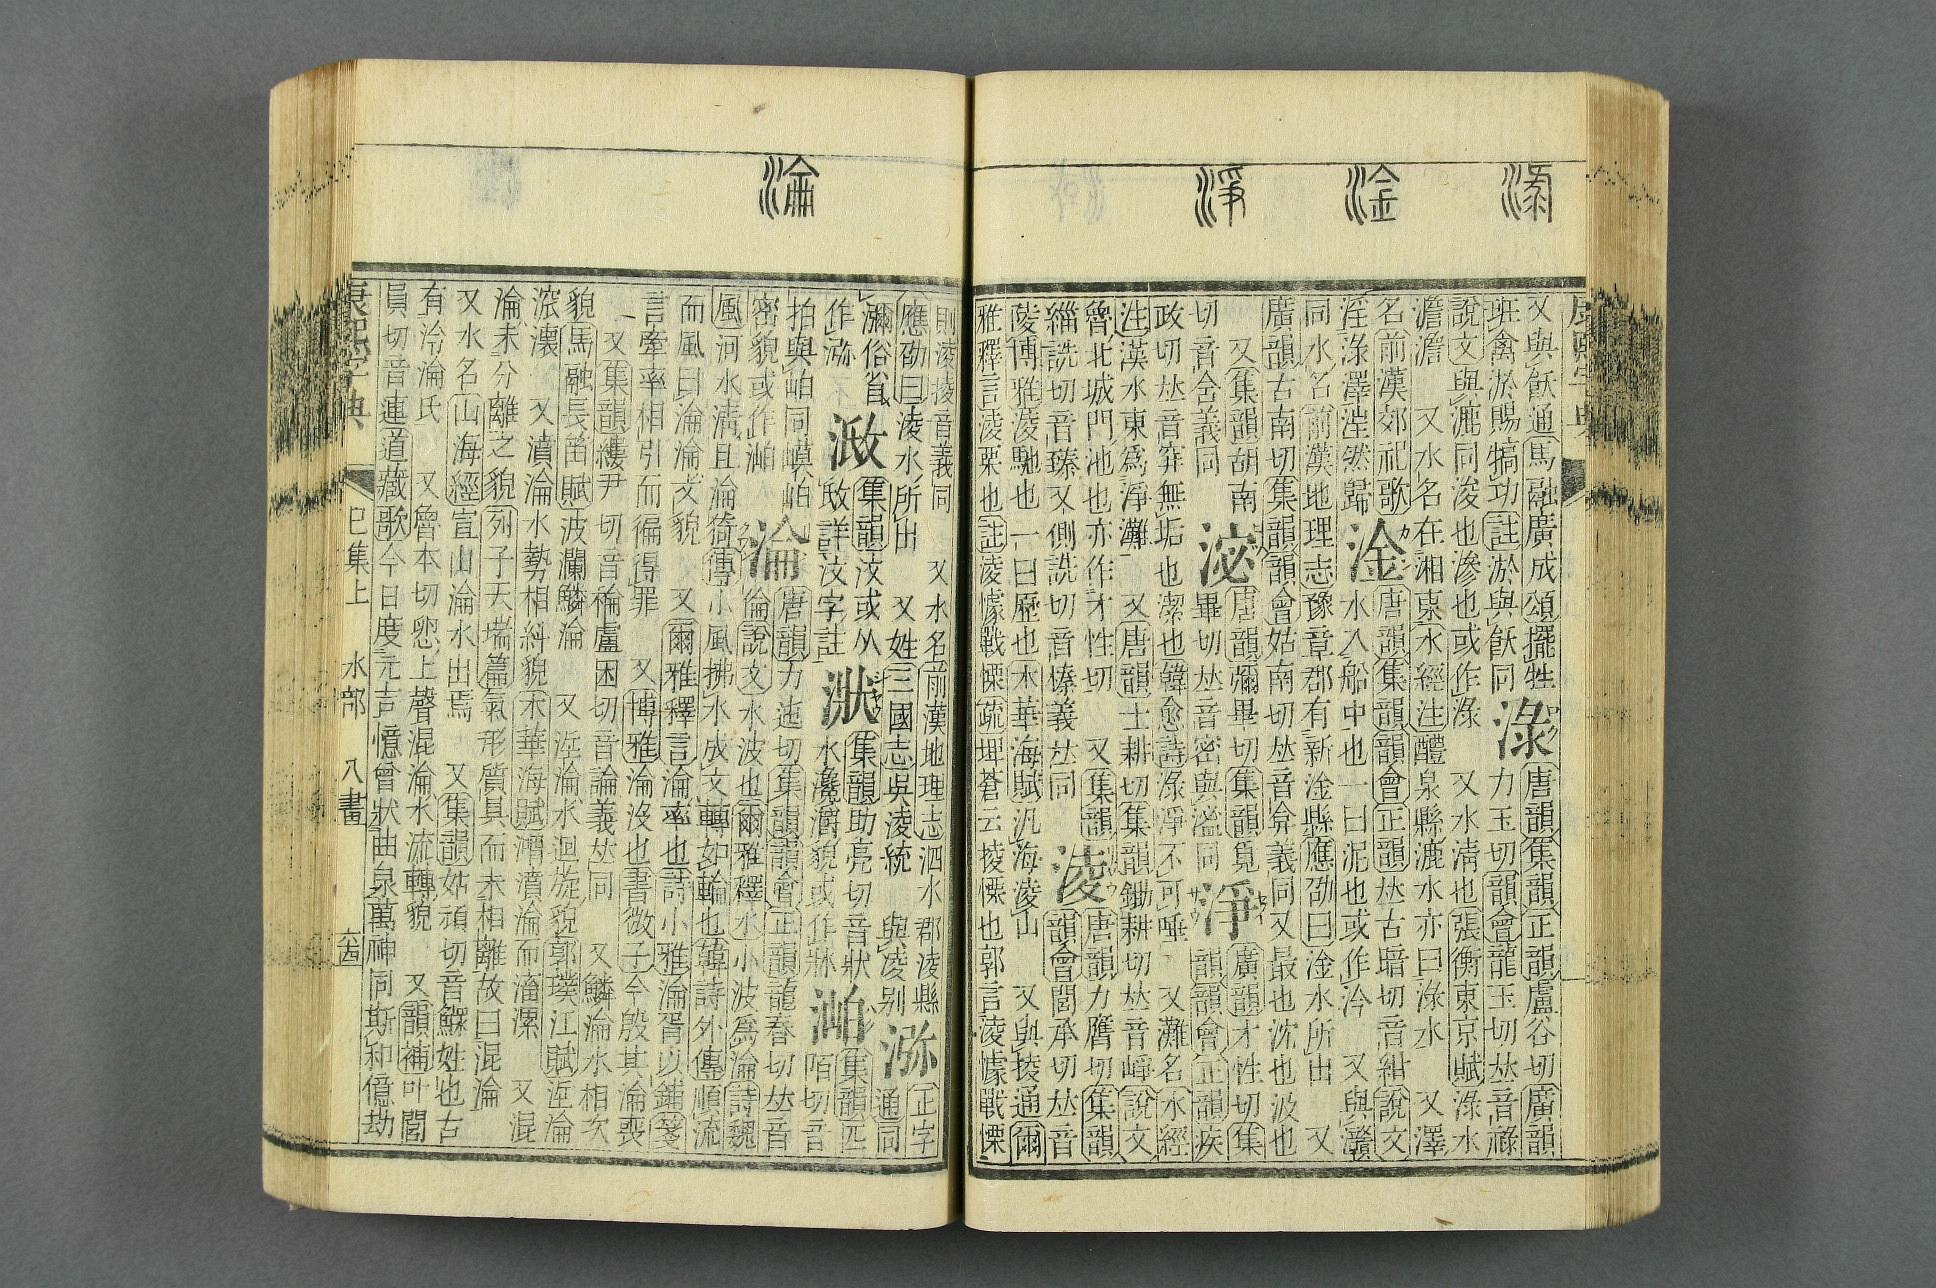 淥
淦
淨
淪
康熙字典
又與飫通馬融廣成頌擺牲
班禽淤賜犒功註淤與飫同
淥
唐韻集韻正韻盧谷切廣韻
力玉切韻會龍玉切𠀤音祿
說文與漉同浚也滲也或作淥　又水淸也張衡東京賦淥水
澹澹　又水名在湘東水經注醴泉縣漉水亦曰淥水　又澤
名前漢郊祀歌
淫淥澤𣴠然歸
淦
唐韻集韻韻會正韻𠀤古暗切音紺說文
水入船中也一曰泥也或作汵　又與灨
同水名前漢地理志豫章郡有新淦縣應劭曰淦水所出　又
廣韻古南切集韻韻會姑南切𠀤音弇義同又最也沈也波也
又集韻胡南
切音含義同
淧
唐韻彌畢切集韻覓
畢切𠀤音密與滵同
淨
廣韻才性切集
韻韻會正韻疾
政切𠀤音穽無垢也潔也韓愈詩淥淨不可唾　又灘名水經
注漢水東爲淨灘　又唐韻士耕切集韻鋤耕切𠀤音崢說文
魯北城門池也亦作才性切　又集韻
緇詵切音臻又側詵切音榛義𠀤同
淩
唐韻力膺切集韻
韻會閭承切𠀤音
陵博雅淩馳也一曰歷也木華海賦汎海淩山　又與掕通爾
雅釋言淩栗也註淩懅戰慄疏埤蒼云掕慄也郭言淩懅戰慄
則淩掕音義同　又水名前漢地理志泗水郡淩縣
應劭曰淩水所出　又姓三國志吳淩統　與凌別
㳽
正字
通同
瀰俗省
作㳽
集韻汶或从
敃詳汶字註
集韻助亮切音狀
水貌或作
集韻匹
陌切音
拍與岶同㟮岶
密貌或作
淪
唐韻力迍切集韻韻會正韻龍春切𠀤音
倫說文水波也爾雅釋水小波爲淪詩魏
風河水淸且淪猗傳小風拂水成文轉如輪也韓詩外傳順流
而風曰淪淪文貌　又爾雅釋言淪率也詩小雅淪胥以鋪箋
言牽率相引而徧得罪　又博雅淪沒也書微子今殷其淪喪
又集韻縷尹切音稐盧困切音論義𠀤同　又鱗淪水相次
貌馬融長笛賦波瀾鱗淪　又泓淪水迴旋貌郭璞江賦泓淪
瀤　又濆淪水勢相糾貌木華海賦濆淪而滀漯　又混
淪未分離之貌列子天瑞篇氣形質具而未相離故曰混淪
又水名山海經宣山淪水出焉　又集韻姑頑切音鰥姓也古
有泠淪氏　又魯本切上聲混淪水流轉貌　又韻補叶閭
員切音連道藏歌今日度元吉憶曾狀曲泉萬神同斯和億劫
康熙字典　巳集上　水部　八畫　六四